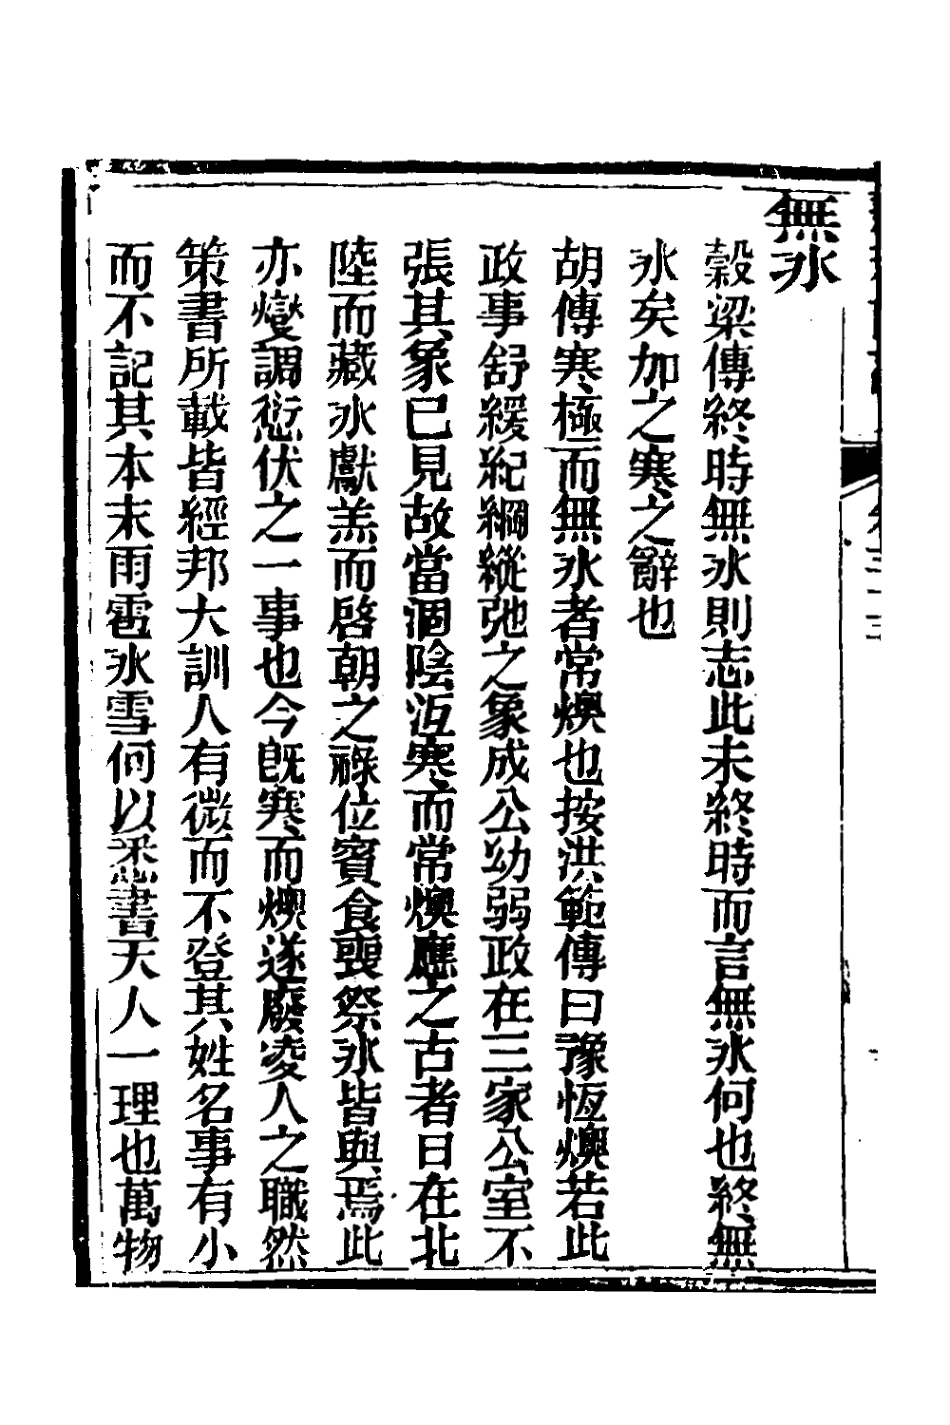 無冰
穀梁傳終時無冰則志此未終時而言無冰何也終無
冰矣加之寒之辭也
胡傳寒極而無冰者常燠也按洪範傳曰豫恆燠若此
政事舒緩紀綱縱弛之象成公幼弱政在三家公室不
張其象已見故當涸陰沍寒而常燠應之古者日在北
陸而藏冰獻羔而啓朝之祿位賓食喪祭冰皆與焉此
亦燮調愆伏之一事也今旣寒而燠遂廢凌人之職然
策書所載皆經邦大訓人有微而不登其姓名事有小
而不記其本末雨雹冰雪何以悉書天人一理也萬物